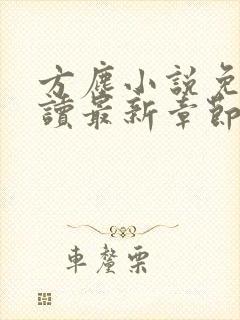 方塵小說免
讀最新章節
車釐栗